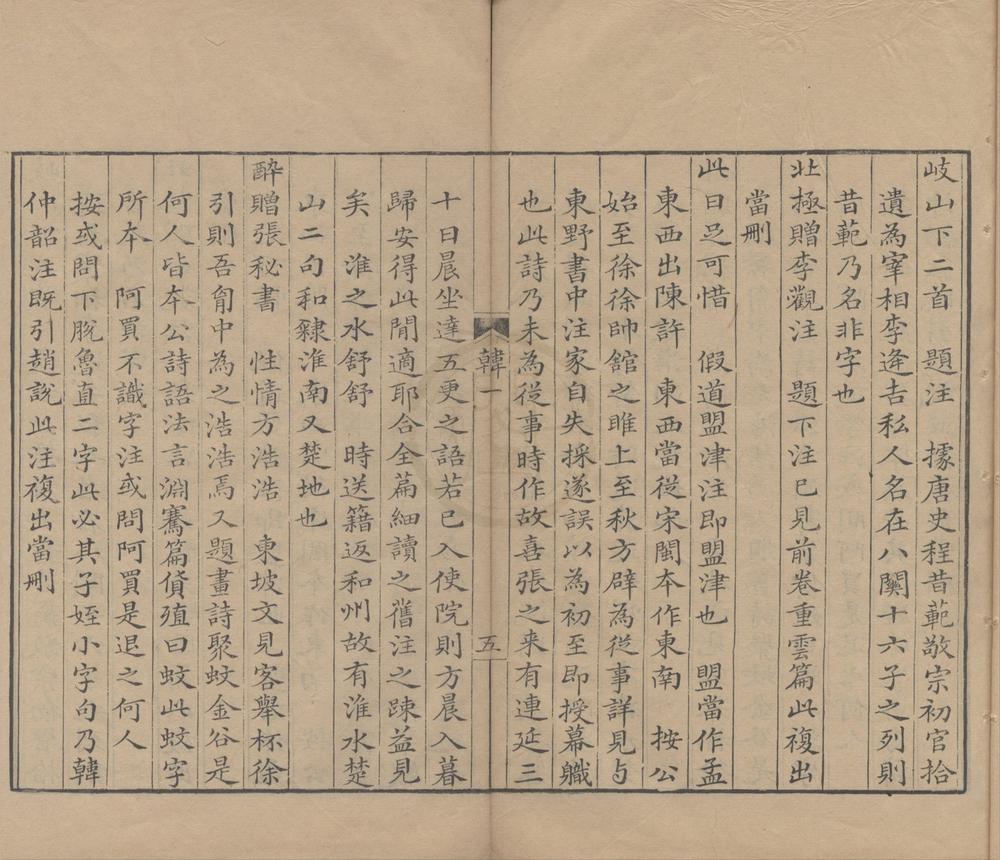 岐山下二首　題注　據唐史程昔範敬宗初官拾
遺為宰相李逢吉私人名在八關十六子之列則
昔範乃名非字也
北極贈李觀注　題下注已見前卷重雲篇此複出
當刪
此日足可惜　假道盟津注即盟津也　盟當作孟
東西出陳許　東西當從宋閩本作東南　按公
始至徐徐帥館之睢上至秋方辟為從事詳見与
東野書中注家自失採遂誤以為初至即授幕職
也此詩乃未為從事時作故喜張之来有連延三
韓一
五
十日晨坐達五更之語若已入使院則方晨入暮
歸安得此閒適耶合全篇細讀之舊注之踈益見
矣　淮之水舒舒　時送籍返和州故有淮水楚
山二句和隸淮南又楚地也
酔贈張秘書　性情方浩浩　東坡文見客舉杯徐
引則吾胷中為之浩浩焉又題畫詩聚蚊金谷是
何人皆本公詩語法言淵騫篇貨殖曰蚊此蚊字
所本　阿買不識字注或問阿買是退之何人
按或問下脫魯直二字此必其子姪小字句乃韓
仲韶注既引趙說此注複出當刪